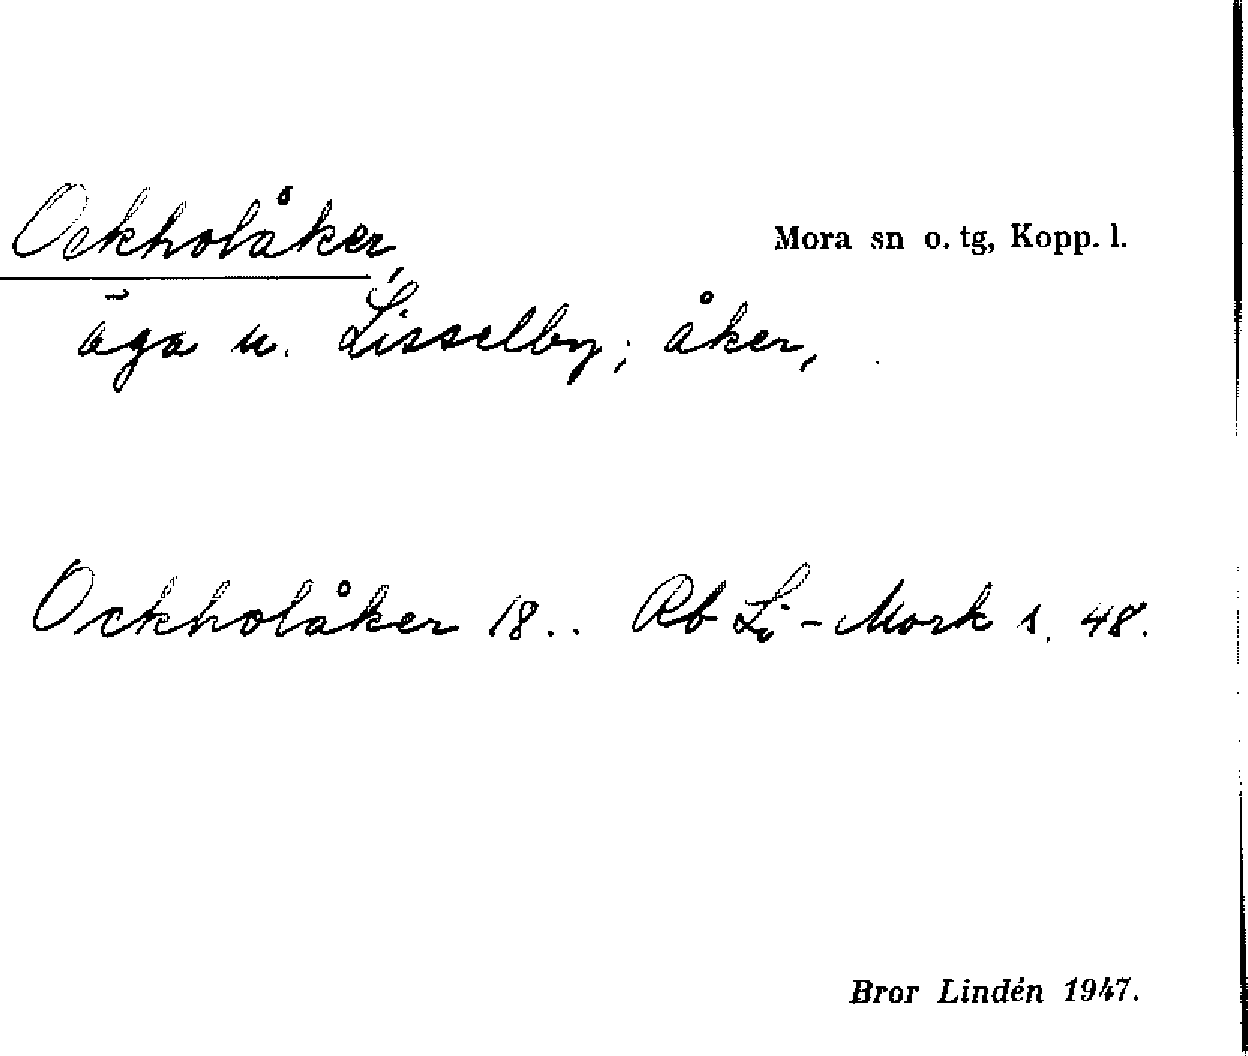 Ockholåker,
Mora sn o. tg, Kopp. l.
äga u. Lisselby; åker,
Ockholåker 18.. Rb Li-Mork s. 48.
Bror Lindén 1947.